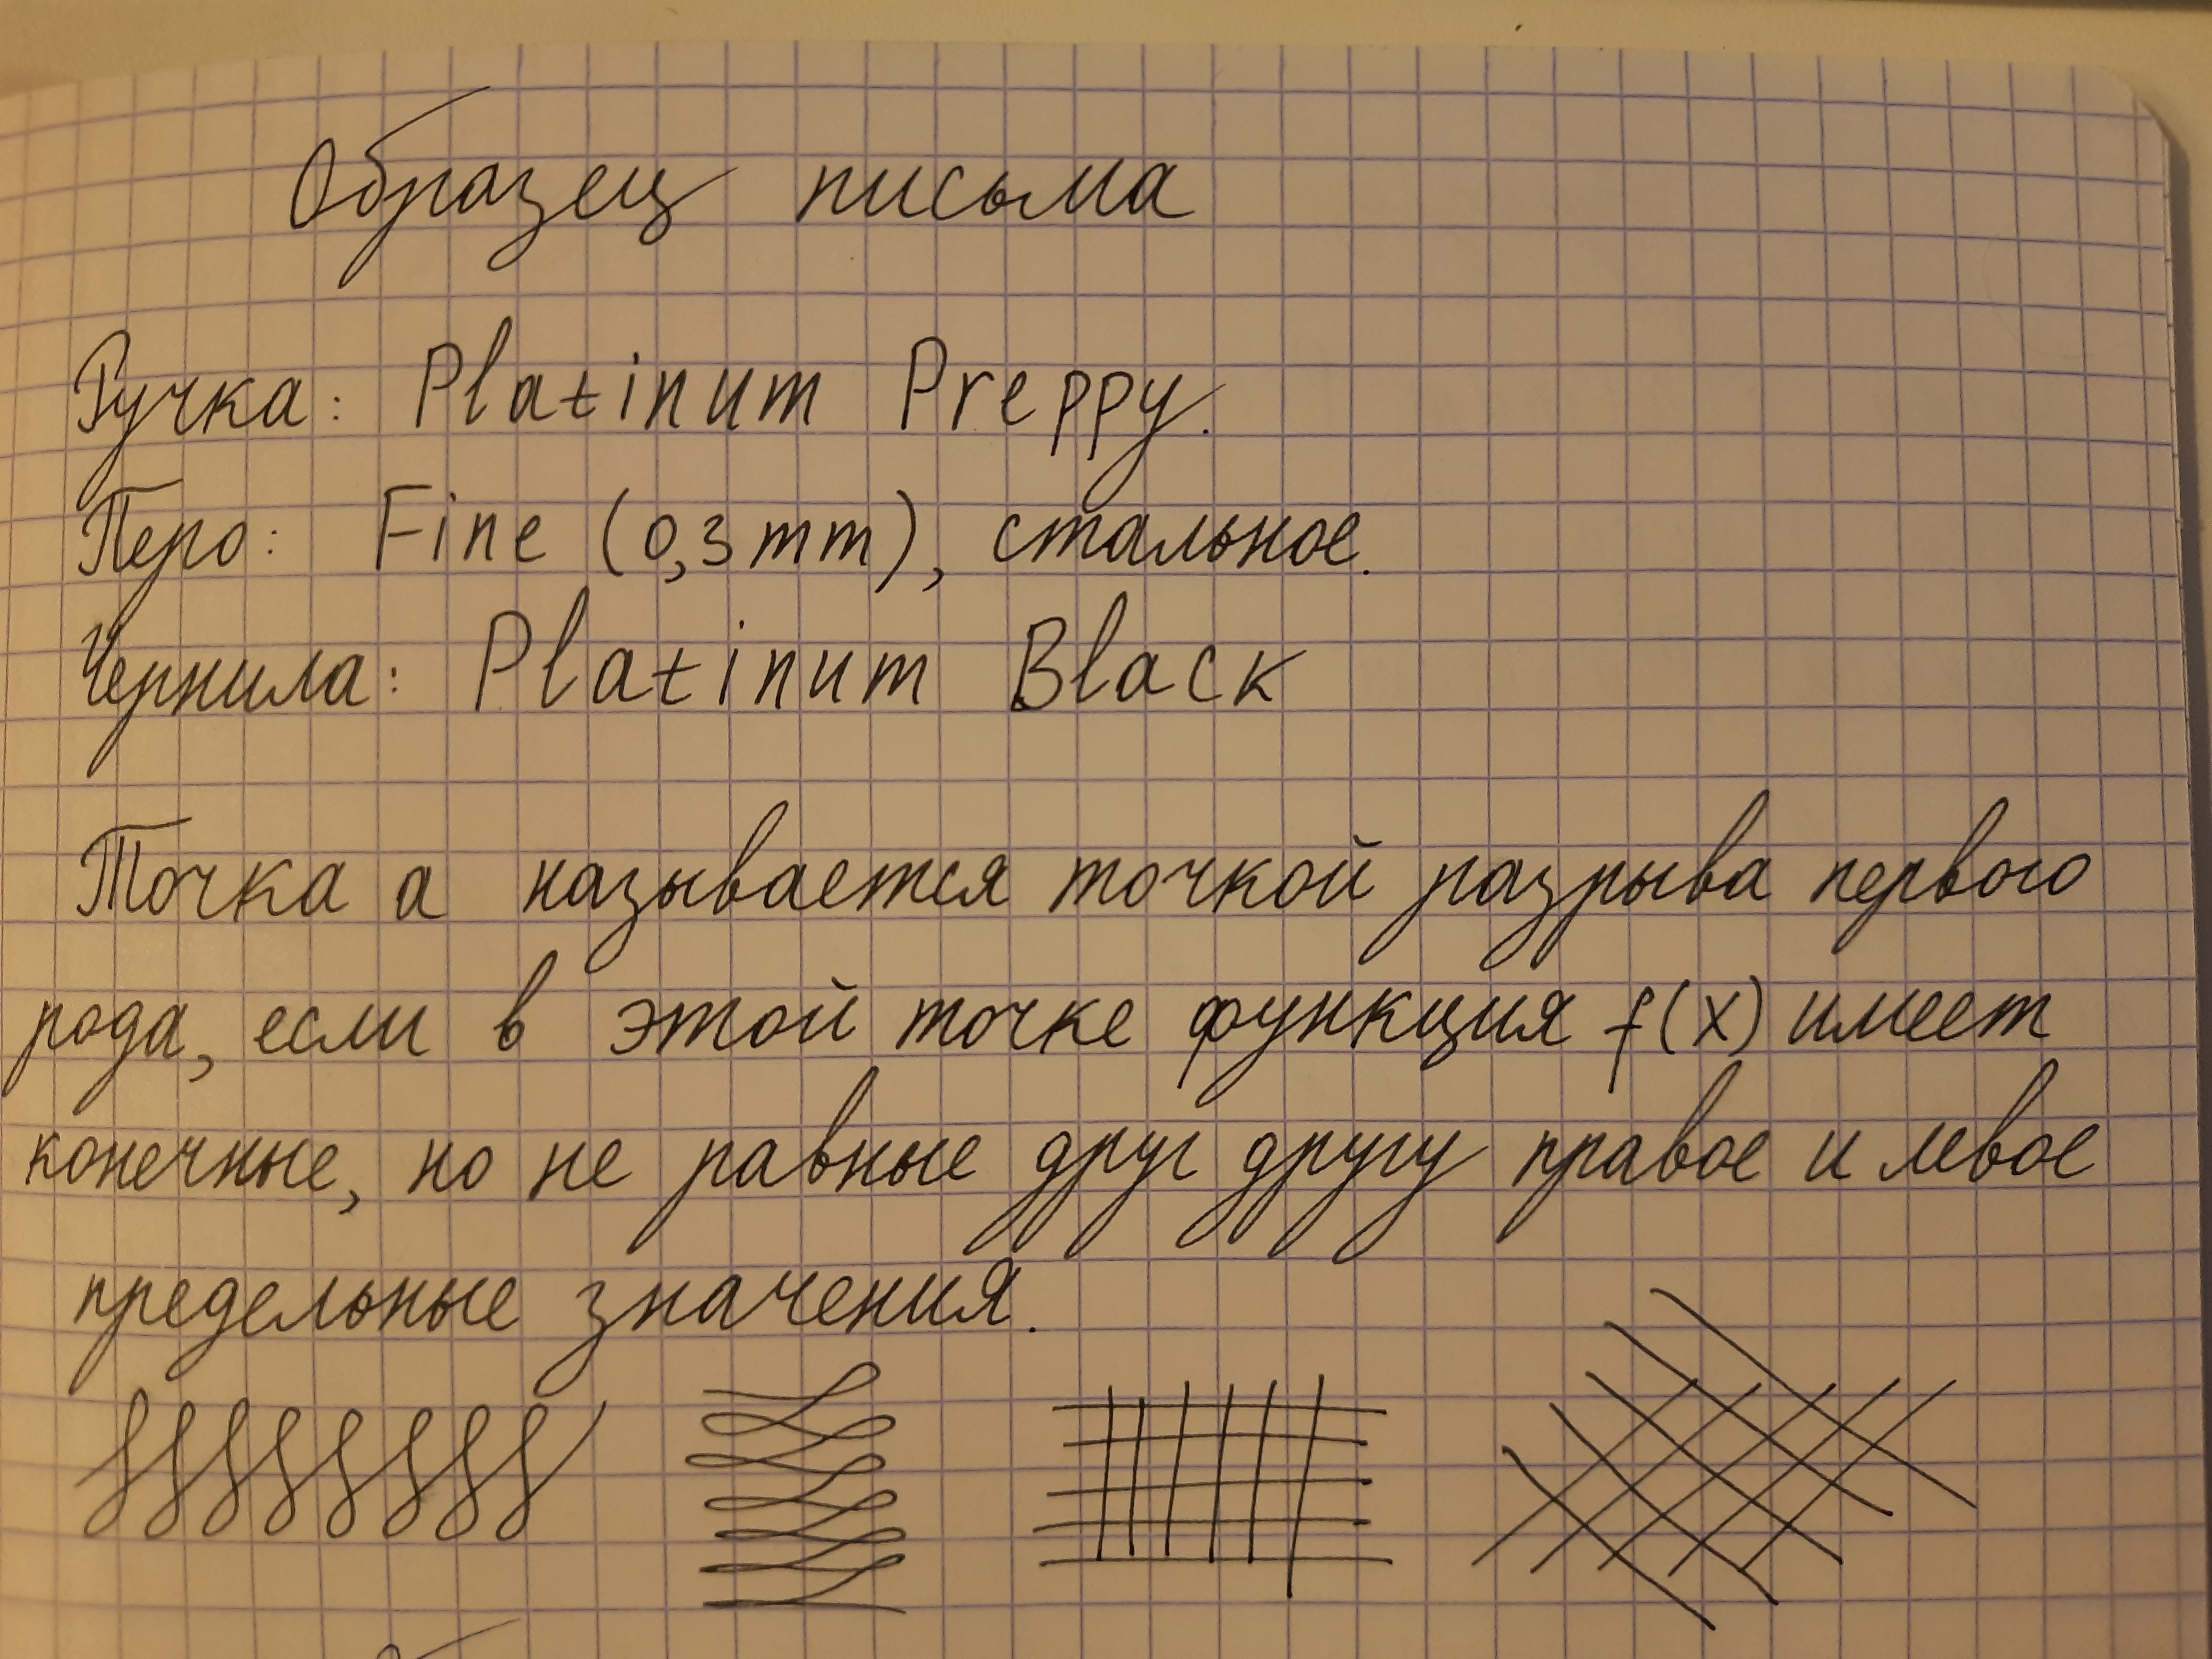 Образец письма
Ручка: Platinum Preppy.
Перо: Fine (0,3mm), стальное.
Чернила: Platinum Black
Точка а называется точкой разрыва первого
рода, если в этой точке функция f(x) имеет
конечные, но не равные друг другу правое и левое
предельные значения.